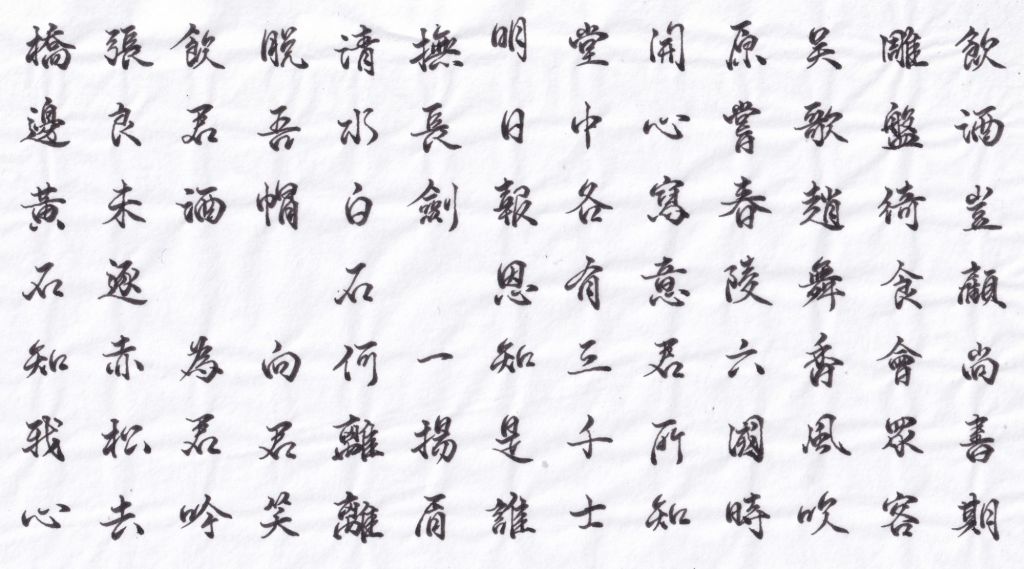 飲酒豈顧尚善期
雕盤綺食會眾客
吴歌趙舞香風吹
原嘗春陵六國時
開心寫意君所知
堂中各有三千士
明日報恩知是誰
撫長劍一揚眉
清水白石何離離
脱吾帽向君笑
飲君酒為君吟
張良未逐赤松去
橋邊黃石知我心